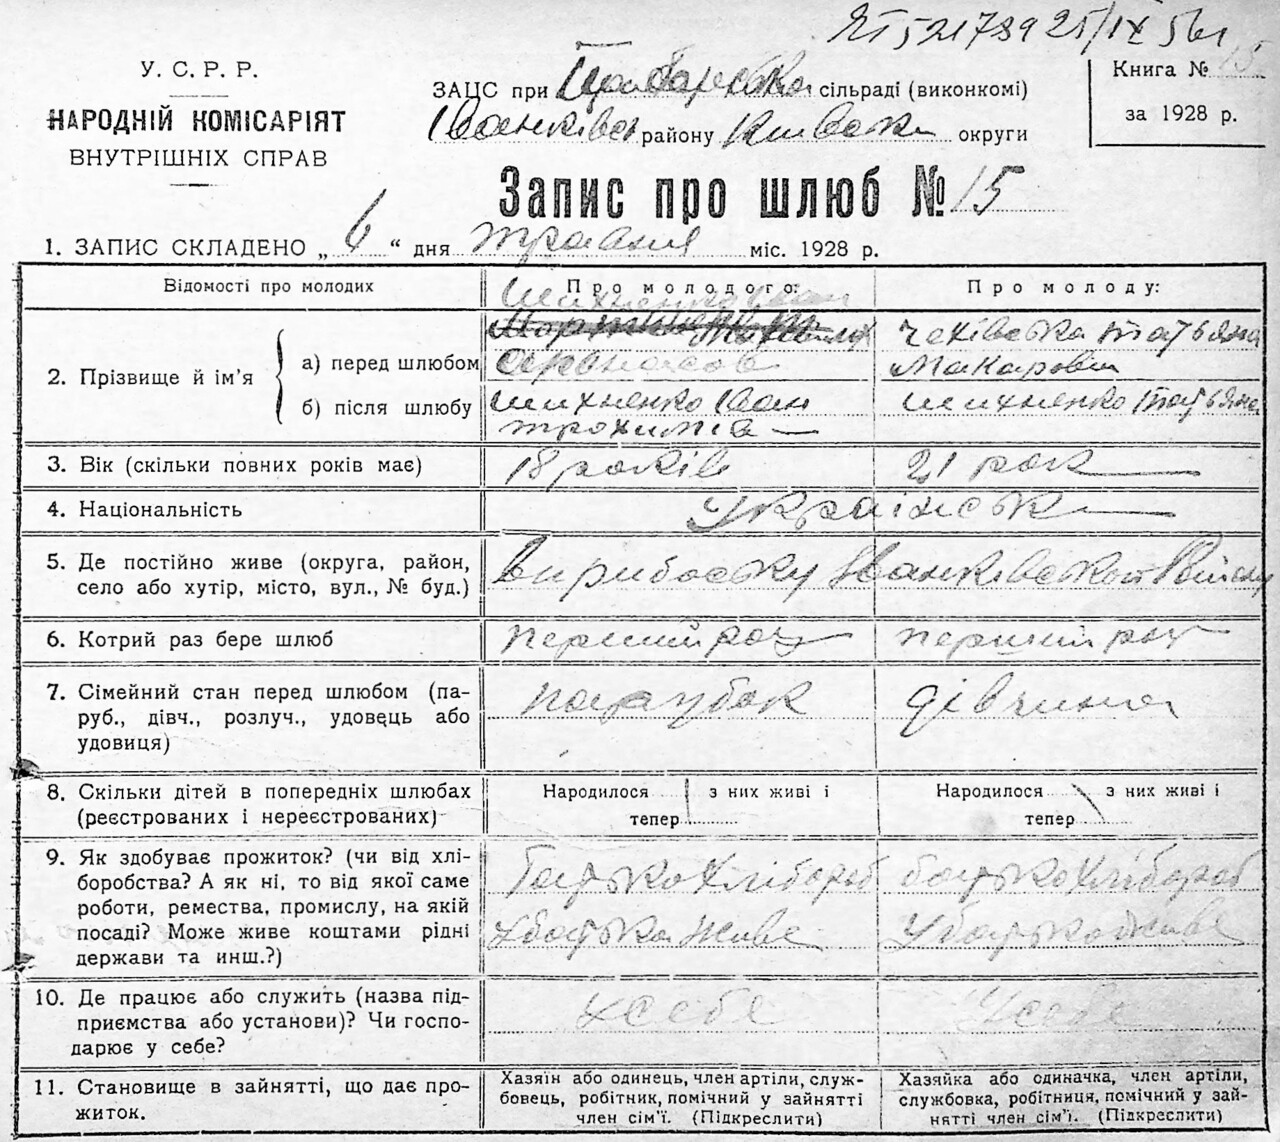 25/IX 56
У. С. Р. Р.
НАРОДНІЙ КОМІСАРІЯТ
ВНУТРІШНІХ СПРАВ
ЗАЦС при сільраді (виконкомі)
Іванківськ району Київськ округи
Книга № 15
за 1928 р.
Запис про шлюб № 15
1. ЗАПИС СКЛАДЕНО „ 6 “ дня травня міс. 1928 р.
Відомості про молодих
Про молодого:
Про молоду:
2. Прізвище й ім’я
а) перед шлюбом
Шихненко Іван
Чехівська Татьяна
Макаровна
б) після шлюбу
Шихненко Іван
Трохимів
Шихненко Татьяна
3. Вік (скільки повних років має)
18 років
21 рок
4. Національність
Українськ
5. Де постійно живе (округа, район,
село або хутір, місто, вул., № буд.)
Іванківського Району
6. Котрий раз бере шлюб
перший раз
перший раз
7. Сімейний стан перед шлюбом (па-
руб., дівч., розлуч., удовець або
удовиця)
парубок
дівчина
8. Скільки дітей в попередніх шлюбах
(реєстрованих і нереєстрованих)
Народилося з них живі і
тепер
Народилося з них живі і
тепер
9. Як здобуває прожиток? (чи від хлі-
боробства? А як ні, то від якої саме
роботи, ремества, промислу, на якій
посаді? Може живе коштами рідні
держави та инш.?)
Батько Хлібороб
У батька живе
батько Хлібороб
У батька живе
10. Де працює або служить (назва під-
приємства або установи)? Чи госпо-
дарює у себе?
У себе
У себе
11. Становище в зайнятті, що дає про-
житок.
Хазяїн або одинець, член артілі, служ-
бовець, робітник, помічний у зайнятті
член сім’ї. (Підкреслити)
Хазяйка або одиначка, член артілі,
службовка, робітниця, помічний у зай-
нятті член сім’ї. (Підкреслити)